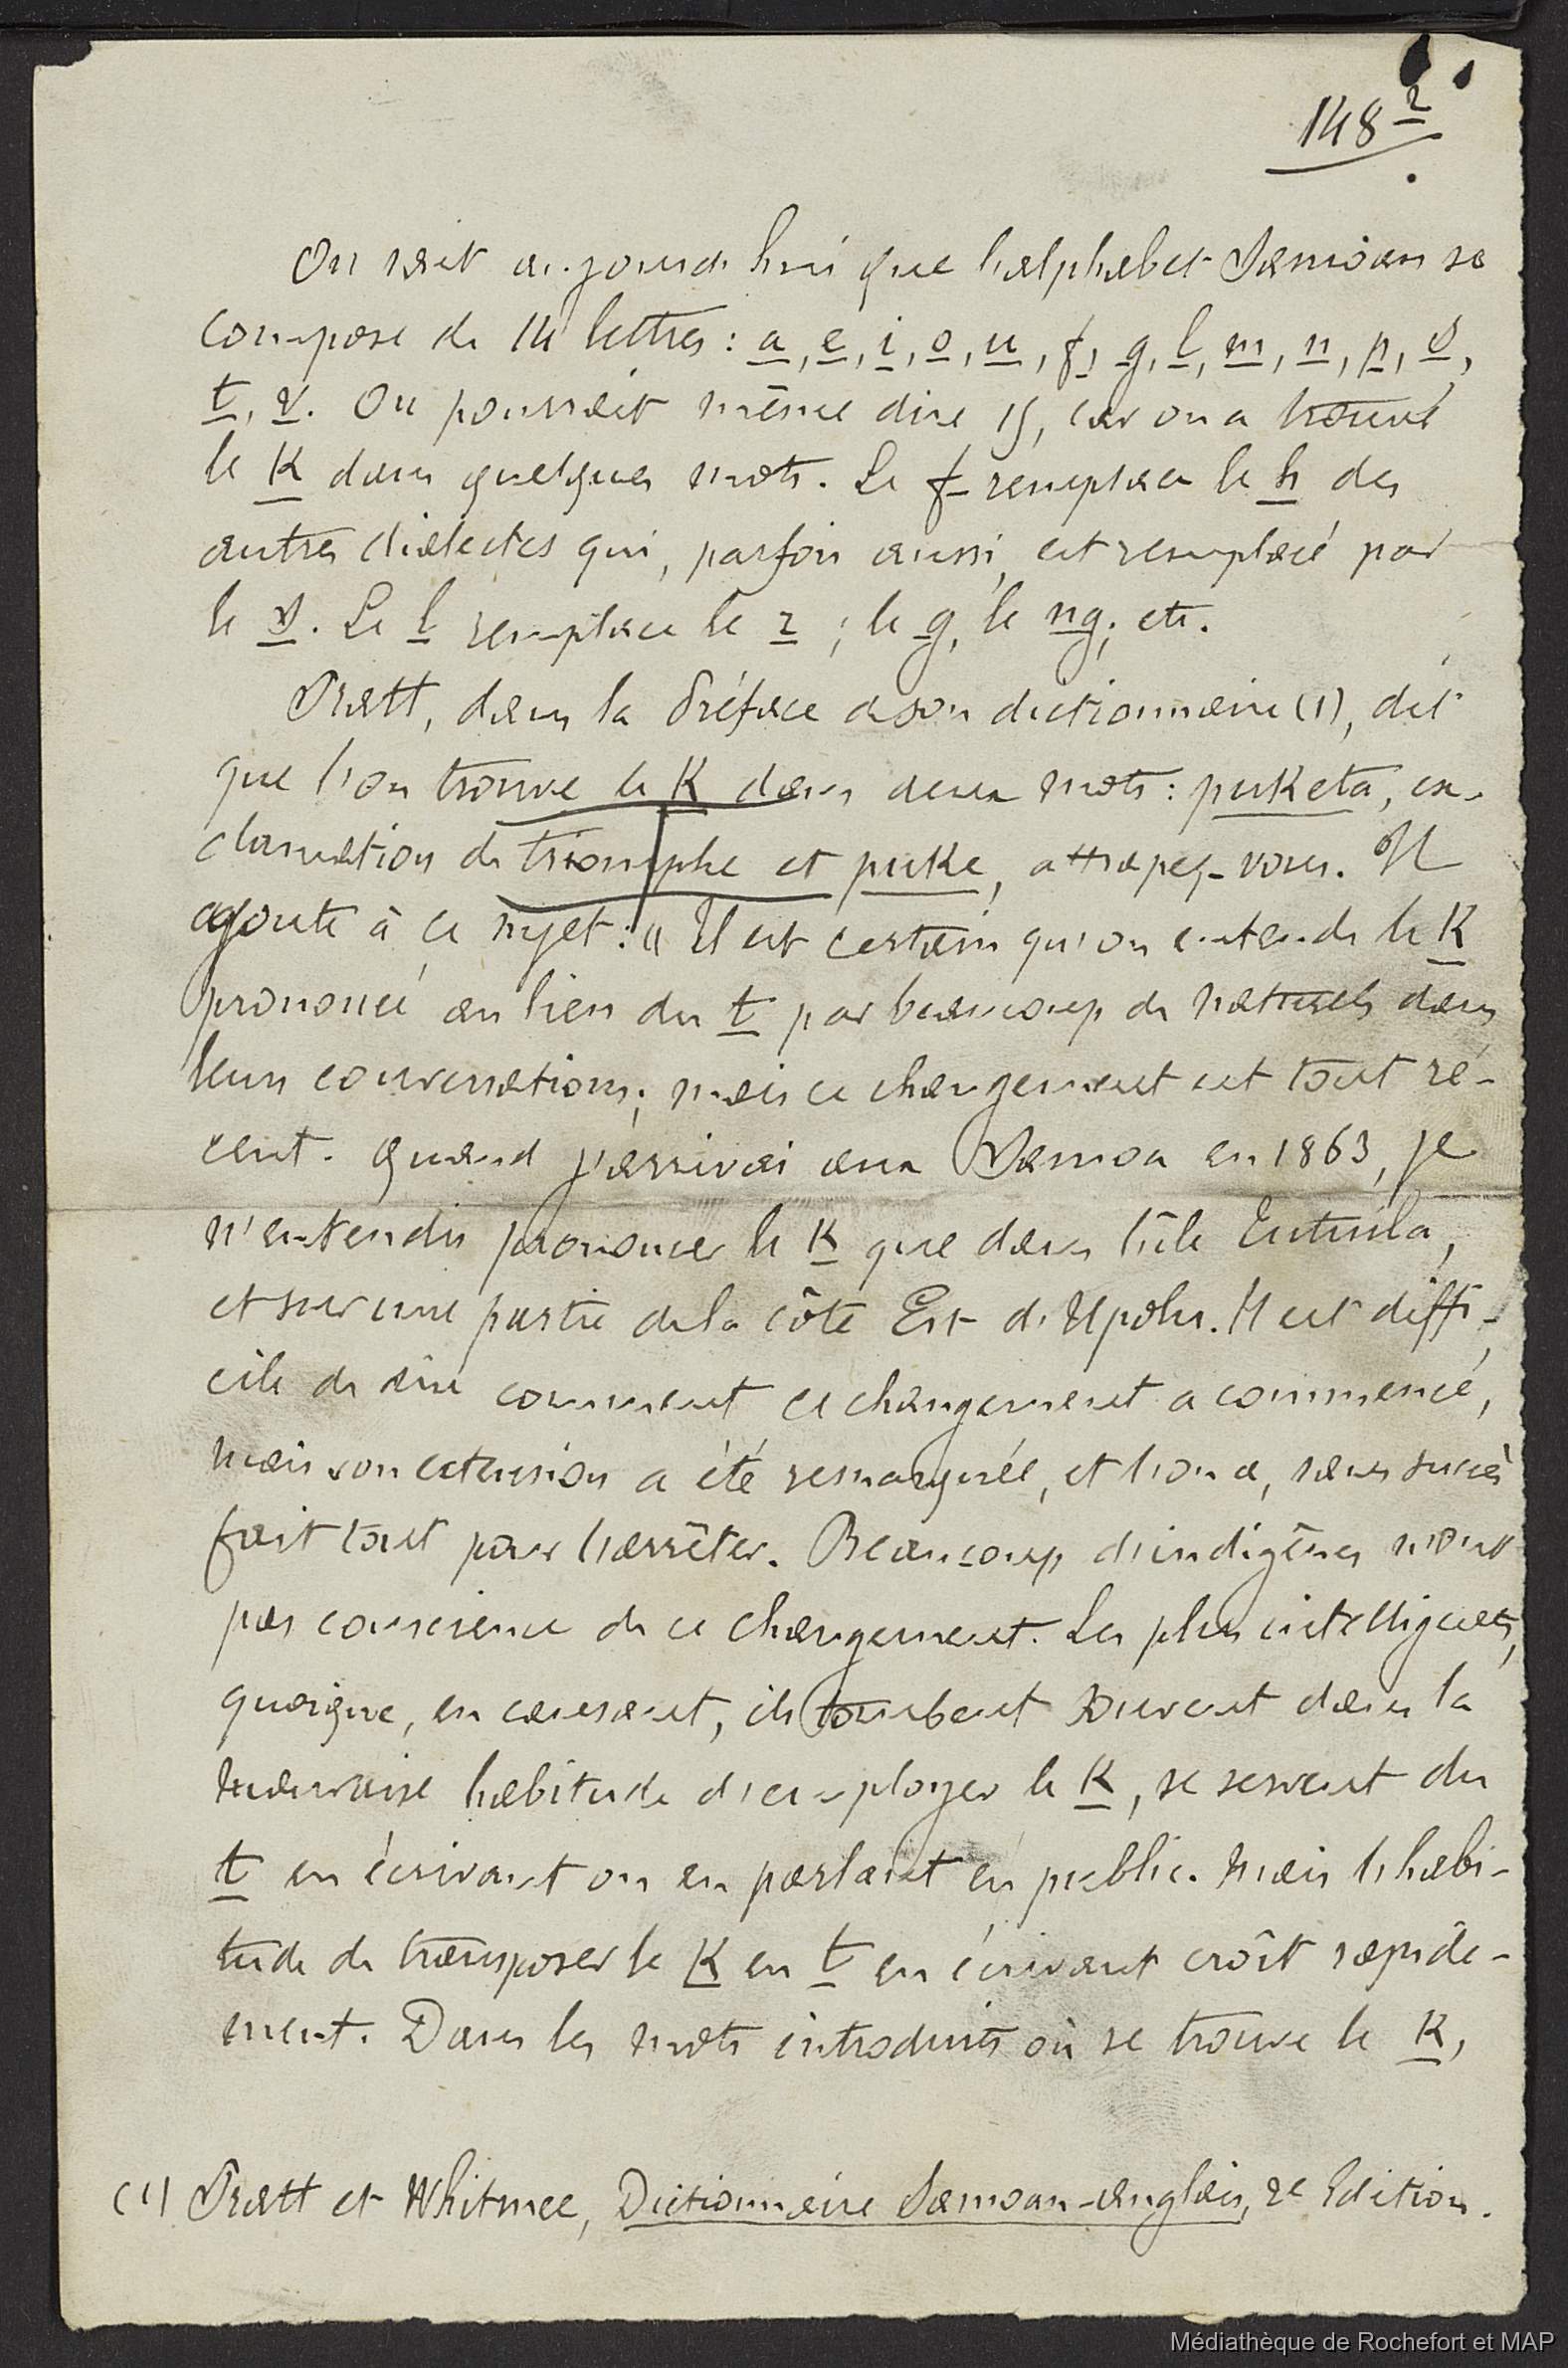 148 2
On sait aujourd'hui que l'alphabet Samoan se
compose de 14 lettres : a, e, i, o, u, f, g, l, m, n, p, s,
t, v. On pourrait même dire 15, car on a trouvé
le K dans quelques mots. Le f remplace le h des
autres dialectes qui, parfois aussi, est remplacé par
le s. Le l remplace le r ; le g, le ng ; etc.
Pratt, dans la Préface de son dictionnaire (1), dit
que l'on trouve le K dans deux mots : puKeta, ex-
clamation de triomphe et puKe, attrapez-vous. Il
ajoute à ce sujet : « Il est certain qu'on entende le K
prononcé au lieu du t par beaucoup de naturels dans
leurs conversations ; mais ce changement est tout ré-
cent. Quand j'arrivai aux Samoa en 1863, je
n'entendis prononcer le K que dans l'île Tutuila,
et sur une partie de la côte Est d'Upolu. Il est diffi-
cile de dire comment ce changement a commencé,
mais son extension a été remarquée, et l'on a, sans succès
fait tout pour l'arrêter. Beaucoup d'indigènes n'ont
pas conscience de ce changement. Les plus intelligents,
quoique, en causant, ils tombent souvent dans la
mauvaise habitude d'employer le K, se servent du
t en écrivant ou en parlant en public. Mais l'habi-
tude de transposer le K en t en écrivant croît rapide-
ment. Dans les mots introduits où se trouve le K,
(1) Pratt et Whitmee, Dictionnaire Samoan-anglais, 2e Edition.
Médiathèque de Rochefort et MAP